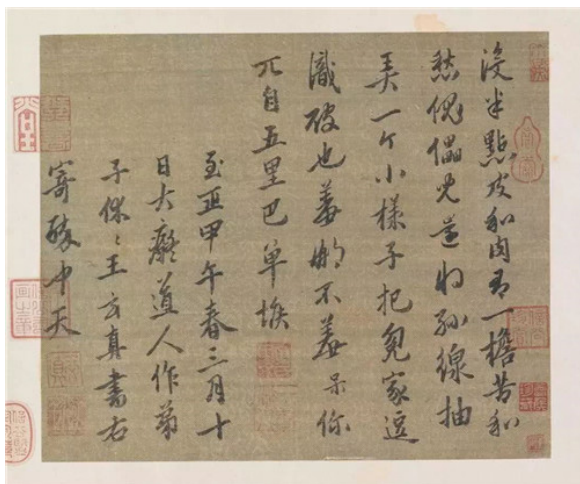 没半點皮和肉有一擔苦和
愁傀儡兒還将絲線抽
弄一个小樣子把冤家逗
識破也羞那不羞呆你
兀自五里巴单堠
至正甲午春三月十
日大癡道人作弟
子休〻王玄真書右
寄醉中天